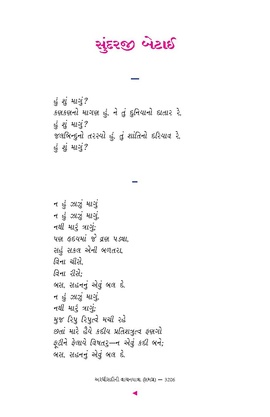 સુંદરજી બેટાઈ
હું શું માગું?
કણકણનો માગણ હું, ને તું દુનિયાનો દાતાર રે,
હું શું માગું?
જલબિન્દુનો તરસ્યો હું, તું શાંતિનો દરિયાવ રે,
હું શું માગું?
ન હું ઝાઝું માગું
ન હું ઝાઝું માગું,
નથી મારું ત્રાગું;
પણ હૃદયમાં જે વ્રણ પડ્યા,
સહું સકલ એની બળતરા,
વિના ચીસે,
વિના રીસે;
બસ, સહનનું એવું બલ દે.
ન હું ઝાઝું માગું,
નથી મારું ત્રાગું;
મુજ રિપુ રિપુત્વે મચી રહે
છતાં મારે હૈયે કદીય પ્રતિશત્રુત્વ ફણગો
ફૂટીને ફેલાવે વિષતરુ—ન એવું કદી બને;
બસ, સહનનું એવું બલ દે.
અરધી સદીની વાચનયાત્રા — 3206